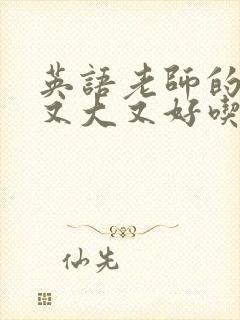 英語老師的
又大又好喫
仙先